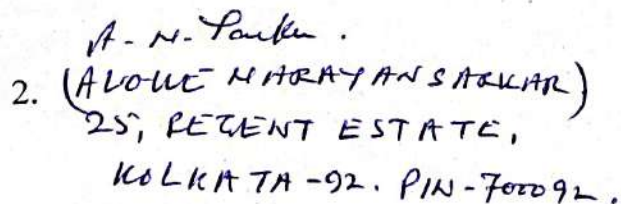 A. N. Sarkar.
2. (ALOKE NARAYAN SARKAR)
25, REGENT ESTATE,
KOLKATA-92. PIN-700092.